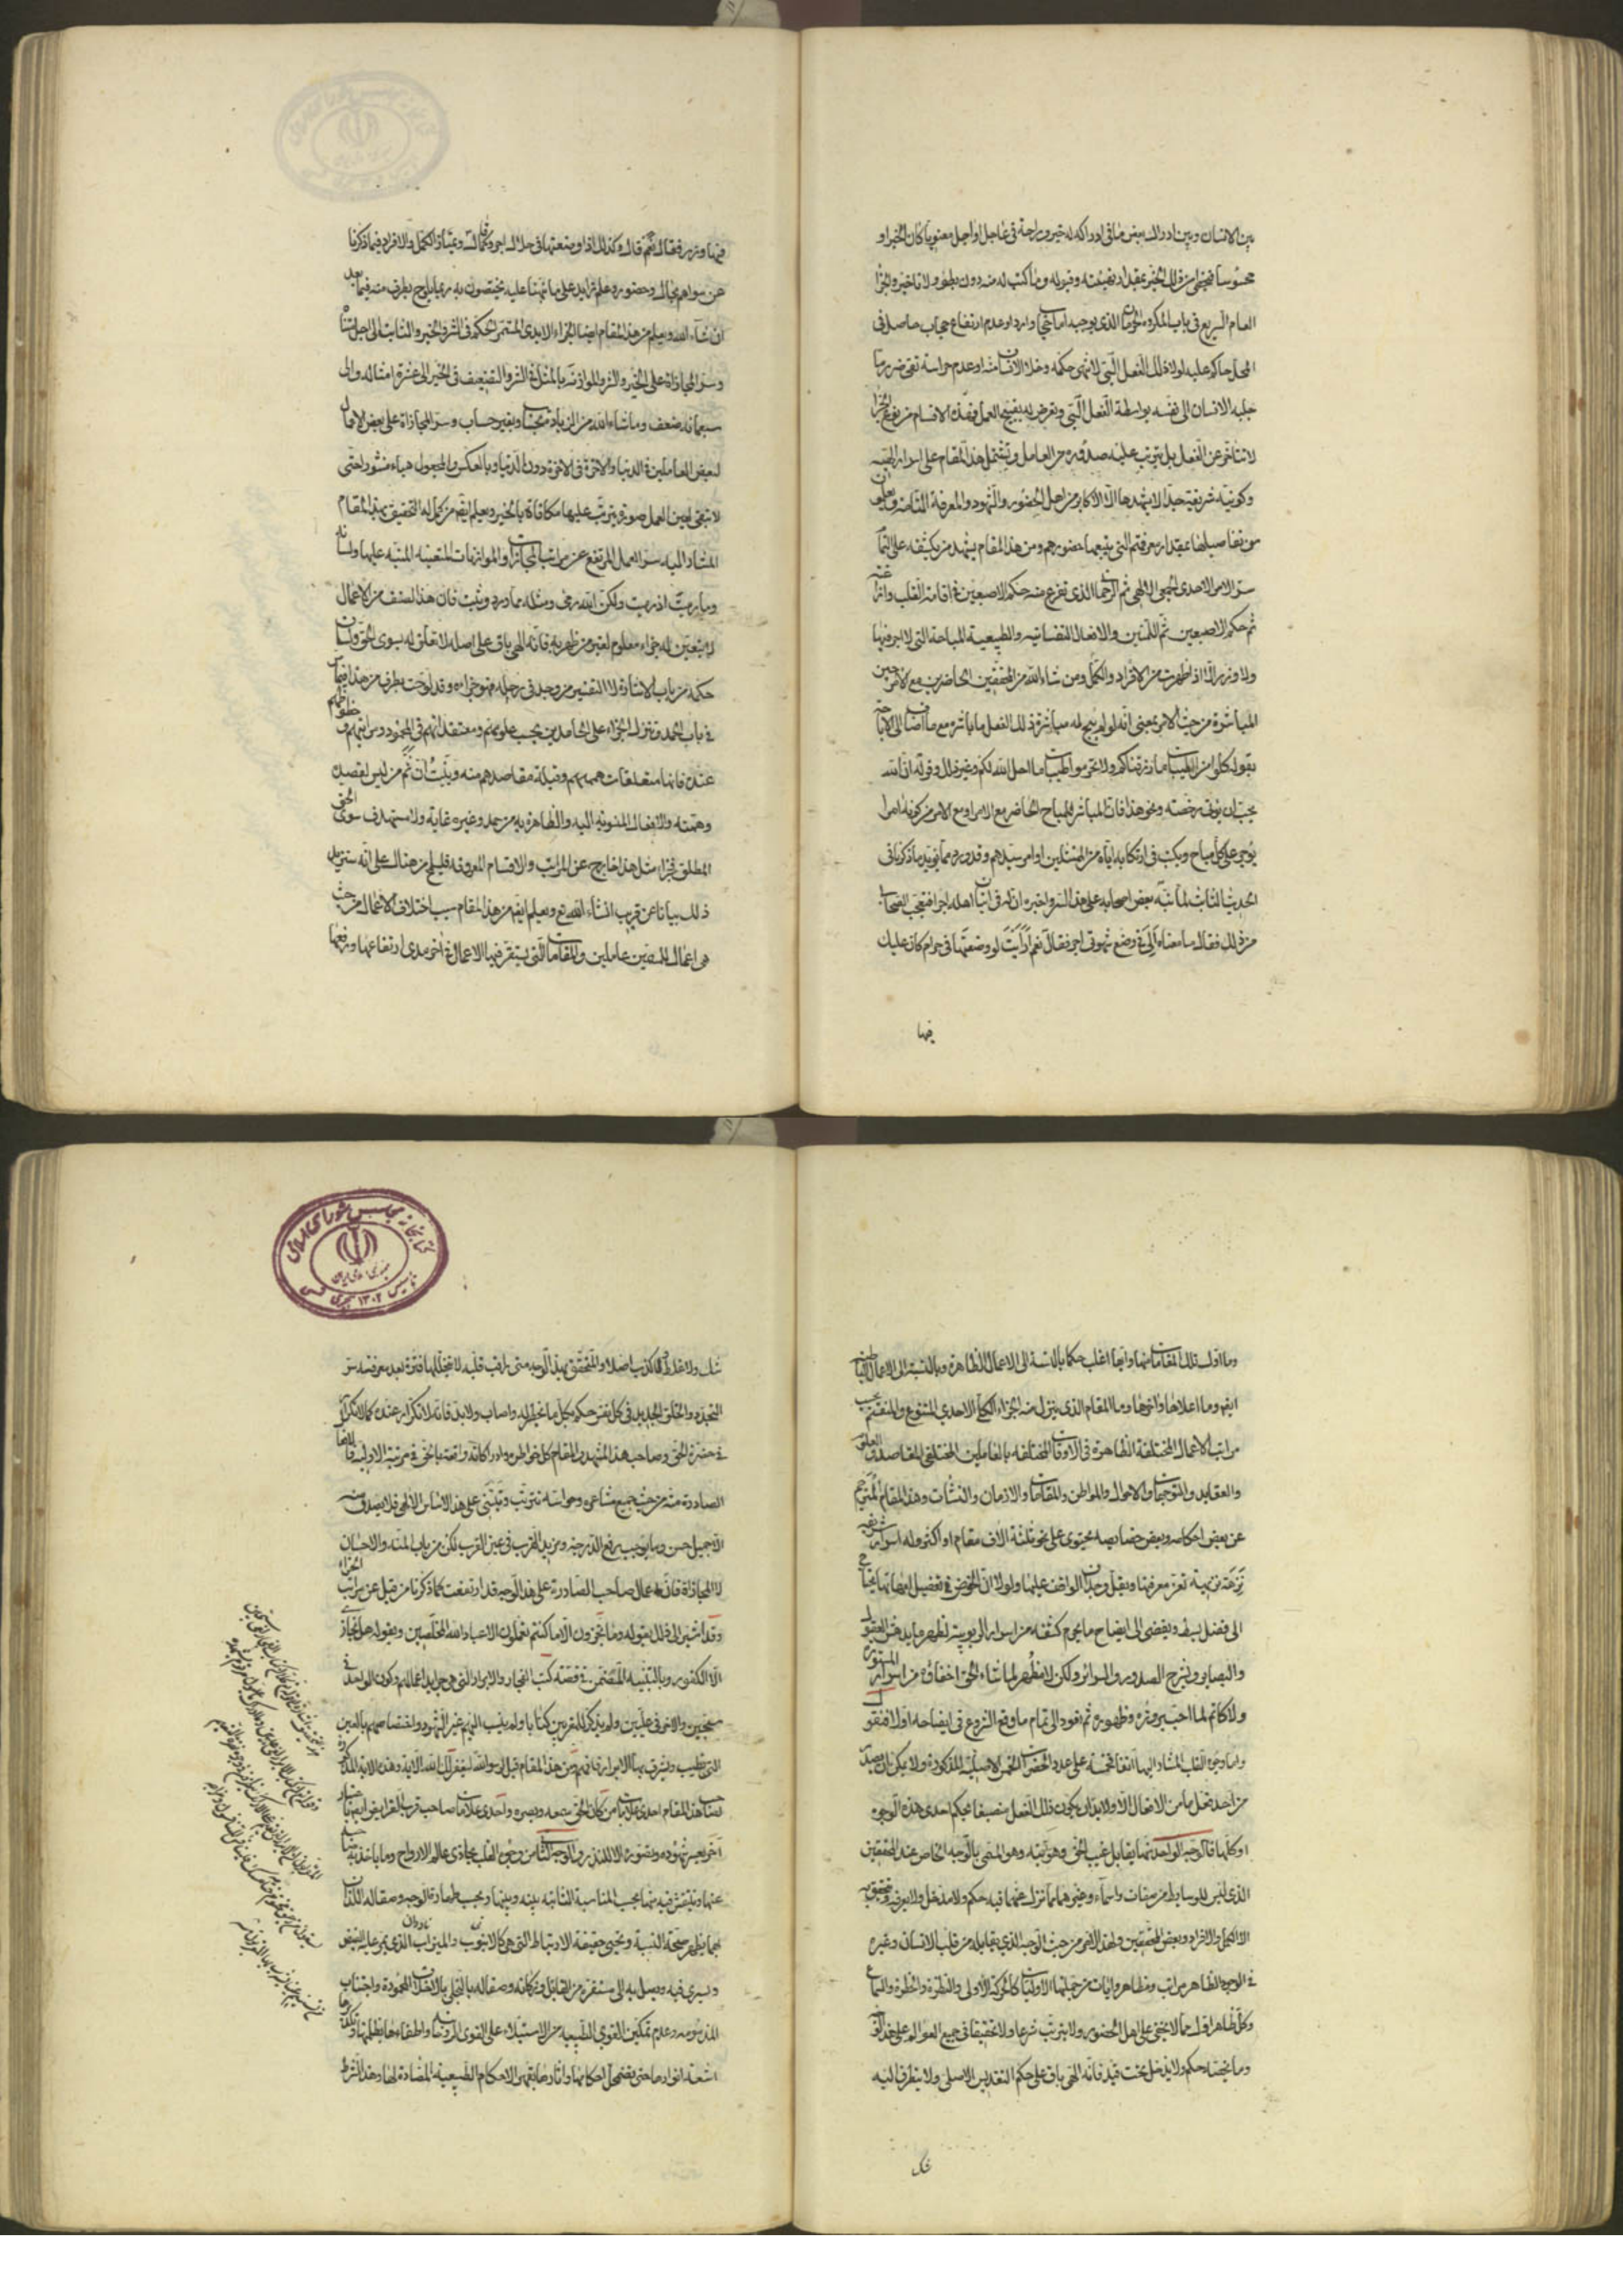 بين الانسان وبين ادراك بعض ما في ادراكه له خير وراحة في عاجل او آجل معنويا كان الخير او
محسوسا فيحظى من ذلك الخير بمقدار نصيبه وقبوله وما كتب له منه دون بطؤ ولا تاخير والجزاء
العام السريع في باب المكروه الذي يوجبه اما وارد او عدم ارتفاع حجاب حاصل في
المحل حاكم عليه لولا ذلك الفعل لانتهى حكمه وخلا الانسان منه او عدم حراسة تقى ضرر ما
جلبه الانسان الى نفسه بواسطة الفعل السيئ وتعرض له بقبيح العمل فهذه الاقسام من نفع الجزاء
لا تتاخر عن الفعل بل يترتب عليه صدوره من العامل ويشتمل هذا المقام على اسرار الهية
وكونية شريفة جدا لا يشهدها الا الاكابر من اهل الحضور والشهود والمعرفة التامة ويعلمون
من تفاصيلها بمقدار معرفتهم التي يتبعها حضورهم ومن هذا المقام يشهد من يكشفه على التمام
سر الامر الاحدى الجمعى الالهى ثم الرحماني الذي تفرع منه حكم الاصبعين في اقامة القلب وازاغته
ثم حكم الاصبعين ثم اللمتين والافعال النفسانية والطبيعية المباحة التي لا اجر فيها
ولا وزر الا اذا ظهرت من الافراد والكمل ومن شاء الله من المحققين الحاضرين مع الامر حين
المباشرة من حيث الامر بمعنى انه لو لم يبح له مباشرة ذلك الفعل ما باشره مع ما اضاف الى الاباحة
بقوله كلوا من طيبات ما رزقناكم ولا تحرموا طيبات ما احل الله لكم وغير ذلك وقوله ان الله
يحب ان يؤتى رخصه ونحو هذا فان المباشر المباح الحاضر مع الامر او مع الامر من كونه امرا
يؤجر على كل مباح ويكتب في ارتكابه اياه من الممتثلين اوامر سيدهم وقد ورد مما يؤيد ما ذكرنا في
الحديث الثابت لما نبه بعض اصحابه على هذا السر واخبره ان له في اتيان اهله اجرا فتعجب الصحابى
من ذلك فقال ما معناه أإلى في وضع شهوتى اجر فقال نعم ارأيت لو وضعتها في حرام كان عليك
فيها
فيها وزر فقال نعم قال وكذلك اذا وضعتها في حلال لك اجر ويمتاز الكمل والافراد فيما ذكرنا
عن سواهم بحال وحضور وعلم زايد على ما نبهنا عليه يختصون به ربما يلوح بطرف منه فيما بعد
ان شاء الله ويعلم من هذا المقام ايضا الجزاء الابدى المستمر الحكم في الشر والخير والثابت الى اجل متناه
وسر المجازاة على الخير والشر والموازنة بالمثل في الشر والتضعيف في الخير الى عشرة امثاله والى
سبعمائة ضعف وما شاء الله من الزيادة وبغير حساب وسر المجازاة على بعض الاعمال
لبعض العاملين في الدنيا والآخرة وفي الآخرة دون الدنيا وبالعكس والمجعول هباء منثورا حتى
لا تبقى لعين العمل صورة يترتب عليها مكافاة بالخير ويعلم ايضا من كمل له التحقيق بهذا المقام
المشار اليه سر العمل المرتفع عن مراتب المجازاة والموازنات المتعينة المنبه عليها ولسانه
وما رميت اذ رميت ولكن الله رمى ومثله مما ورد وثبت فان هذا الصنف من الاعمال
لا يتعين له جزاء معلوم لغير من ظهر به فانه الهى باق على اصله لا تعلق له بسوى الحق ولسان
حكمه من باب الاشارة لا التفسير من وجد في رحله فهو جزاؤه وقد لوحت بطرف من هذا فيما مر
في باب الحمد وتنزل الجزاء على الحامدين بحسب علومهم ومعتقداتهم في المحمود ومراتبهم
عنده فانها متعلقات هممهم وقبلة مقاصدهم منه وبينت ان ثم من ليس لقصده
وهمته والافعال المنسوبة اليه والظاهرة به من حمد وغيره غاية ولا مستهدف سوى الحق
المطلق فجزاء مثل هذا خارج عن المراتب والاقسام المعروفة فليلمح من هناك على انه سنزيد
ذلك بيانا عن قريب انشاء الله تع ويعلم ايضا من هذا المقام سبب اختلاف الاعمال من حيث
هي اعمال للمتعين عاملين والمقامات التي يستقر فيها الاعمال في آخر مدى ارتفاعها ورفعها
وما اول تلك المقامات منها وايها اغلب حكما بالنسبة الى الاعمال الظاهرة وبالنسبة الى الاعمال الباطنة
ايضا وما اعلاها وانزلها وما المقام الذي ينزل منه الجزاء الكلى الاحدى المتنوع والمنقسم بحسب
مراتب الاعمال المختلفة الظاهرة في الاوقات المختلفة بالعاملين المختلفى المقاصد والعلوم
والعقايد والتوجهات والاحوال والمواطن والمقامات والازمان والنشآت وهذا المقام المترجم
عن بعض احكامه وبعض خصايصه يحتوى على نحو ثلثة آلاف مقام او اكثر وله اسرار شريفة
نزهة غريبة تعز معرفتها ويقل وجدان الواقف عليها ولولا ان الخوض في تفصيل امهاتها يحتاج
الى فضل بسط ويفضى الى ايضاح ما يحرم كشفه من اسرار الربوبية لظهر ما يدهش العقول
والبصاير ويشرح الصدور والسرائر ولكن لا مظهر لما شاء الحق اخفاؤه من اسراره المستورة
ولا كاتم لما احب بروزه وظهوره ثم نعود الى تمام ما وقع الشروع في ايضاحه اولا فنقول
واما وجوه القلب المشار اليها آنفا فخمسة على عدد الحضرات الخمس الاصلية المذكورة ولا يمكن ان يصدر
من احد فعل ما من الافعال الا ولا بد ان يكون ذلك الفعل منصبغا بحكم احدى هذه الوجوه
او كلها فالوجه الواحد منها يقابل غيب الحق وهويته وهو المسمى بالوجه الخاص عند المحققين
الذي ليس للوسايط من صفات واسماء وغيرهما مما نزل عنهما فيه حكم ولا مدخل ولا يعرفه ويتحقق به
الا الكمل والافراد وبعض المحققين ولهذا الامر من حيث الوجه الذي يقابله من قلب الانسان وغيره
في الوجود الظاهر مراتب ومظاهر وآيات من جملتها الاوليات كالحركة الاولى والنظرة والخطرة والسماع
وكل ظاهر اول مما لا يخفى على اهل الحضور ولا يترتب شرعا ولا تحقيقا في جميع العوالم على هذا الوجه
وما يخصه حكم ولا يدخل تحت قيد فانه الهى باق على حكم التقديس الاصلى ولا يتطرق اليه
شك
شك ولا غلط ولا كذب اصلا والمتحقق بهذا الوجه متى راقب قلبه لا تتخللها فترة بعد معرفته سر
التجدد والخلق الجديد في كل نفس حكم بكل ما يخطر له واصاب ولا بد فانه لا تكرار عنده كما لا تكرار
في حضرة الحق وصاحب هذا المشهد والمقام كل خواطره وادراكاته واقعة بالحق في مرتبة الاولية فالافعال
الصادرة منه من حيث جميع مشاعره وحواسه تترتب وتبتنى على هذا الاساس الالهى فلا يصدر منه
الا جميل حسن وما يوجب رفع الدرجة ومزيد القرب في عين القرب لكن من باب المنة والاحسان
لا المجازاة فان اعمال صاحب الصادرة على هذا الوجه قد ارتفعت كما ذكرنا من قبل عن مراتب الجزاء
وقد اشير الى ذلك بقوله وما تجزون الا ما كنتم تعملون الا عباد الله المخلصين وبقوله هل يجازى
الا الكفور وبالتنبيه المضمن في قصة كتب الفجار والابرار التي هي جرايد اعمالهم وكون الواحد في
سجين والآخر في عليين ولم يذكر للمقربين كتابا ولم ينسب اليهم غير الشهود واختصاصهم بالعين
التي تطيب وتشرف بها الابرار فافهم ومن هذا المقام قيل لرسول الله ليغفر لك الله الآية وهذه الآية المذكورة
لسان هذا المقام احدى علامات من كان الحق سمعه وبصره واحدى علامات صاحب قرب الفرايض ايضا
آخر بعسر شهوده وتصوره الا للندر والوجه الثانى من وجوه القلب يحاذى عالم الارواح وما ياخذ به صاحبه
عنها وينتقش فيه منها بحسب المناسبة الثابتة بينه وبينها وبحسب طهارة الوجه وصقاله اللذان
بهما يظهر صحة النسبة ويحيى حقيقة الارتباط التي هي كالانبوب والميزاب الذي يمر عليه الفيض
ويسرى فيه ويصل به الى مستقره من القابل وزكاته وصقاله بالتحلى بالاخلاق المحمودة واجتناب
المذمومة وعدم تمكين القوى الطبيعية من الاستيلاء على القوى الروحانية واطفاءها بظلمتها وتكدرها
اشعة انوارها حتى يضمحل احكامها وآثارها بقهر الاحكام الطبيعية المضادة لها وهذا الشرط
كتابخانه مجلس شورای اسلامی
جمهوری اسلامی ایران
تاسیس ۱۳۰۲ هجری شمسی